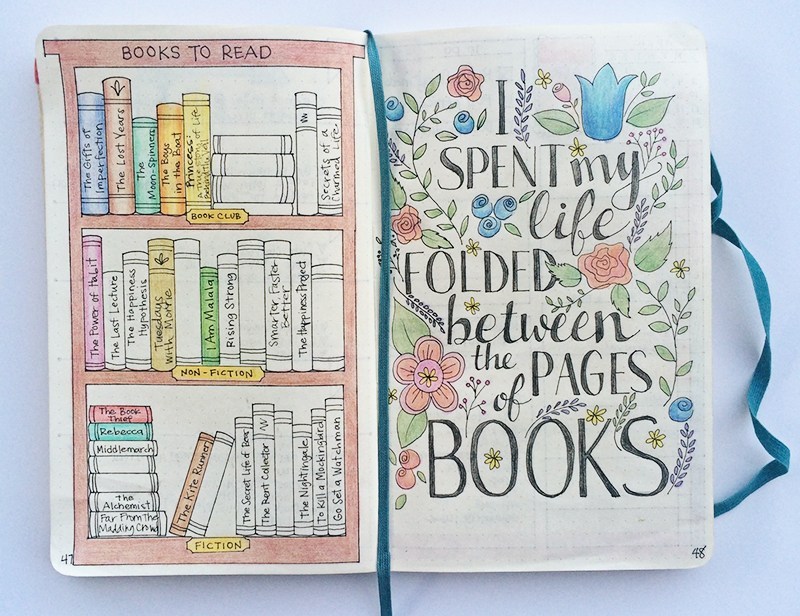 BOOKS TO READ
The Gifts of
Imperfection
The Lost Years
The
Moon-Spinners
The Boys
in the Boat
Princess
A True Story of Life
Secrets of a
Charmed Life
BOOK CLUB
The Power of Habit
The Last Lecture
The Happiness
Hypothesis
Tuesdays
With Morrie
I Am Malala
Rising Strong
Smarter Faster
Better
The Happiness Project
NON-FICTION
The Book
Thief
Rebecca
Middlemarch
the
Alchemist
Far From The
Madding Crowd
The Kite Runner
The Secret Life of Bees
The Rent Collector
The Nightingale
To Kill a Mockingbird
Go Set a Watchman
FICTION
47
I
SPENT my
life
FOLDED
between
the PAGES
of
BOOKS
48